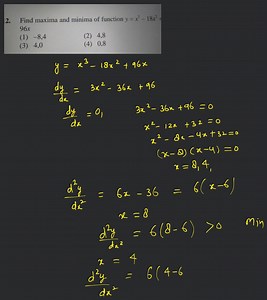 2. Find maxima and minima of function y = x³ – 18x² +
96x
(1) –8,4 (2) 4,8
(3) 4,0 (4) 0,8
y = x³ – 18x² + 96x
dy/dx = 3x² – 36x + 96
dy/dx = 0, 3x² – 36x + 96 = 0
x² – 12x + 32 = 0
x² – 8x – 4x + 32 = 0
(x – 8) (x – 4) = 0
x = 8, 4,
d²y/dx² = 6x – 36 = 6(x – 6)
x = 8
d²y/dx² = 6(8 – 6) > 0 Min
x = 4
d²y/dx² = 6(4 – 6